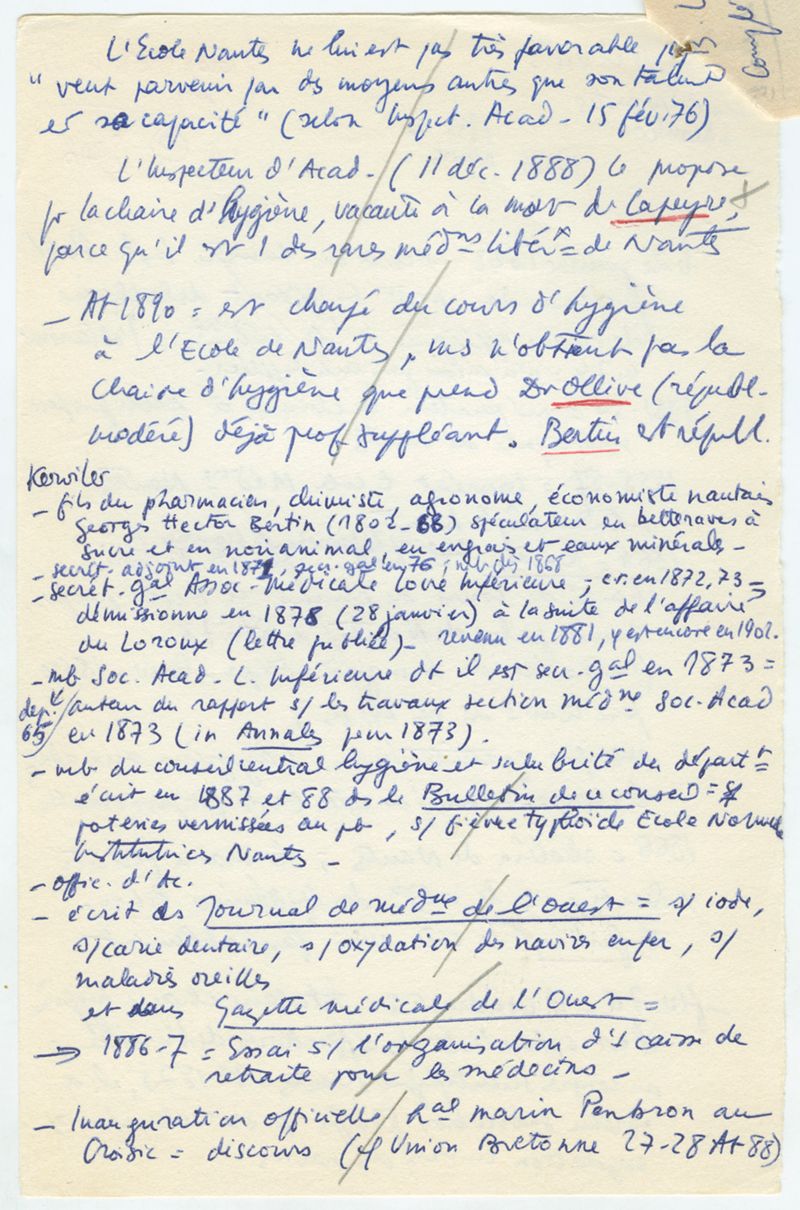 B. L
Complé
L'Ecole Nantes ne lui est pas très favorable pcq
" veut parvenir par des moyens autres que son talent
et sa capacité " (selon Inspect. Acad - 15 fév. 76)
L'Inspecteur d'Acad - (11 déc. 1888) le propose
pr la chaire d'hygiène, vacante à la mort de Lapeyre,
parce qu'il est 1 des rares médns libérx = de Nantes
- At 1890 = est chargé du cours d'hygiène
à l'Ecole de Nantes, ms n'obtient pas la
chaire d'hygiène que prend Dr Ollive (républ-
modéré) déjà prof. suppléant. Bertin est républ.
Kerviler
- fils du pharmacien, chimiste, agronome, économiste nantais
Georges Hector Bertin (1802-68) spéculateur en betteraves à
sucre et en noir animal, en engrais et eaux minérales -
- secrét. adjoint en 1871, secr. gal en 76, mb dès 1868
- secrét. gal Assoc. médicale Loire Inférieure, en 1872, 73 =
démissionne en 1878 (28 janvier) à la suite de l'affaire
du Loroux (lettre publiée) - revenu en 1881, y est encore en 1902.
- mb Soc. Acad - L. Inférieure dt il est secr. gal en 1873 =
dep. 65 / auteur du rapport s/ les travaux section médne Soc. Acad
en 1873 (in Annales pour 1873).
- mb du conseil central hygiène et salubrité du départt =
écrit en 1887 et 88 ds le Bulletin de ce conseil = s/
poteries vernissées au pb, s/ fièvre typhoïde Ecole Normale
Institutrices Nantes -
- offic. d'Ac.
- écrit ds Journal de médne de l'Ouest = s/ iode,
s/ carie dentaire, s/ oxydation des navires en fer, s/
maladies oreilles
et dans Gazette médicale de l'Ouest =
→ 1886-7 = Essai s/ l'organisation d'1 caisse de
retraite pour les médecins -
- Inauguration officielle hal marin Penbron au
Croisic = discours (cf Union Bretonne 27-28 At 88)